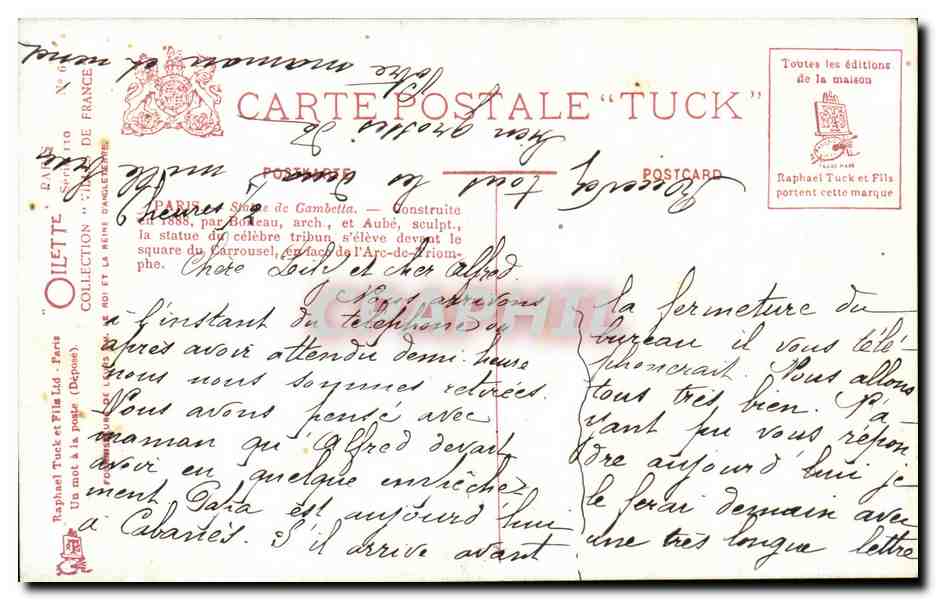 CARTE POSTALE "TUCK"
POSTKARTE
POSTCARD
Toutes les éditions
de la maison
TRADE MARK
Raphael Tuck et Fils
portent cette marque
PARIS. — Statue de Gambetta. — Construite
en 1888, par Boileau, arch., et Aubé, sculpt.,
la statue du célèbre tribun s'élève devant le
square du Carrousel, en face de l'Arc-de-Triom-
phe.
"OILETTE"
PARIS
Série 110
COLLECTION "VILLES DE FRANCE"
Raphael Tuck et Fils Ltd - Paris
Un mot à la poste (Déposé).
FOURNISSEURS DE LEURS MM. LE ROI ET LA REINE D'ANGLETERRE
Chère et cher Alfred
Nous arrivons
à l'instant du téléphone où
après avoir attendu demi heure
nous nous sommes retirées.
Nous avons pensé avec
maman qu'Alfred devait
avoir eu quelque empêchez
ment Papa est aujourd'hui
à Cabanès. S'il arrive avant
la fermeture du
bureau il vous télé-
phonerait. Nous allons
tous très bien. N'a
yant pu vous répon
dre aujourd'hui je
le ferai demain avec
une très longue lettre
Recevez tous les deux mille
bien grosses
Votre maman et
heures
CPAPHIL